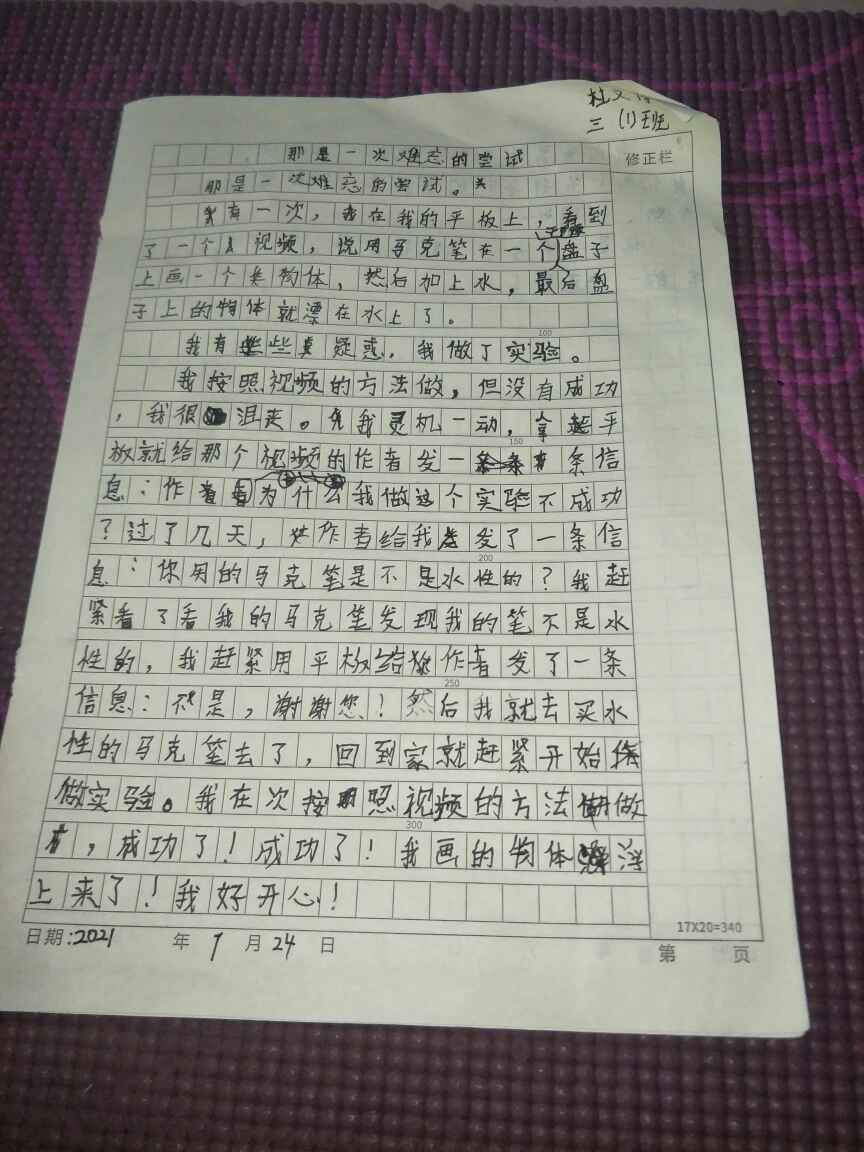 杜文
三（1）班
修正栏
那是一次难忘的尝试
那是一次难忘的尝试。
有一次，我在我的平板上，看到
了一个视频，说用马克笔在一个干的盘子
上画一个类物体，然后加上水，最后盘
子上的物体就漂在水上了。
100
我有些疑惑，我做了实验。
我按照视频的方法做，但没有成功
，我很沮丧。我灵机一动，拿起平
150
板就给那个视频的作者发一条信
息：作者为什么我做这个实验不成功
？过了几天，作者给我发了一条信
200
息：你用的马克笔是不是水性的？我赶
紧看了看我的马克笔发现我的笔不是水
性的，我赶紧用平板给作者发了一条
250
信息：不是，谢谢您！然后我就去买水
性的马克笔去了，回到家就赶紧开始
做实验。我在次按照视频的方法做
300
，成功了！成功了！我画的物体浮
上来了！我好开心！
17X20=340
日期：2021 年 9 月 24 日
第 页